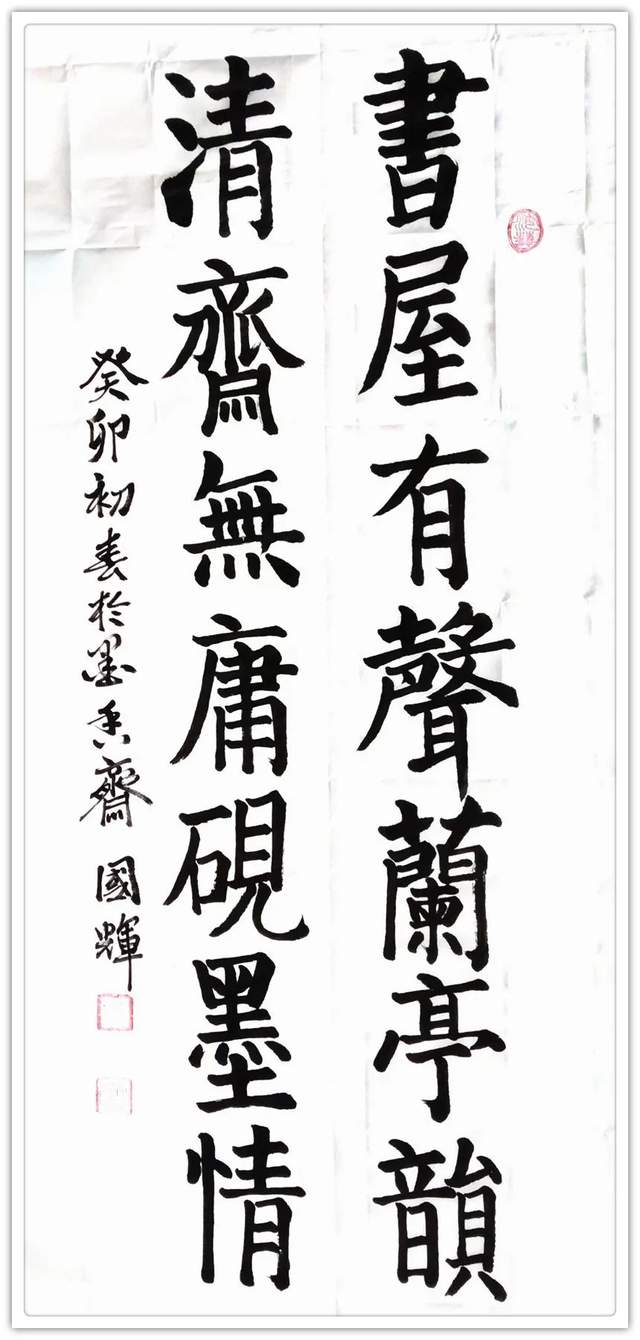 書屋有聲蘭亭韻
清齋無庸硯墨情
癸卯初春於墨香齋 國輝